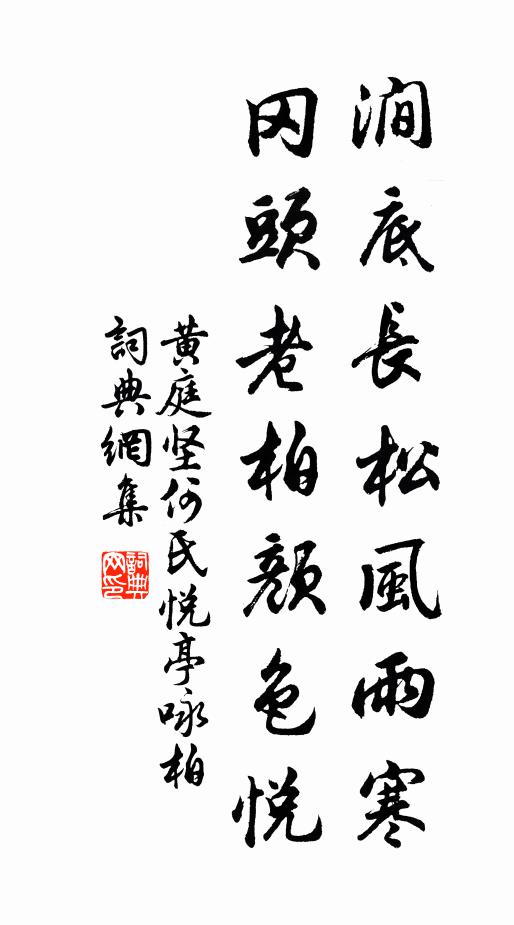 澗底長松風雨寒
冈頭老柏顔色悦
黄庭坚何氏悦亭咏柏
詞典網集
詞典网印